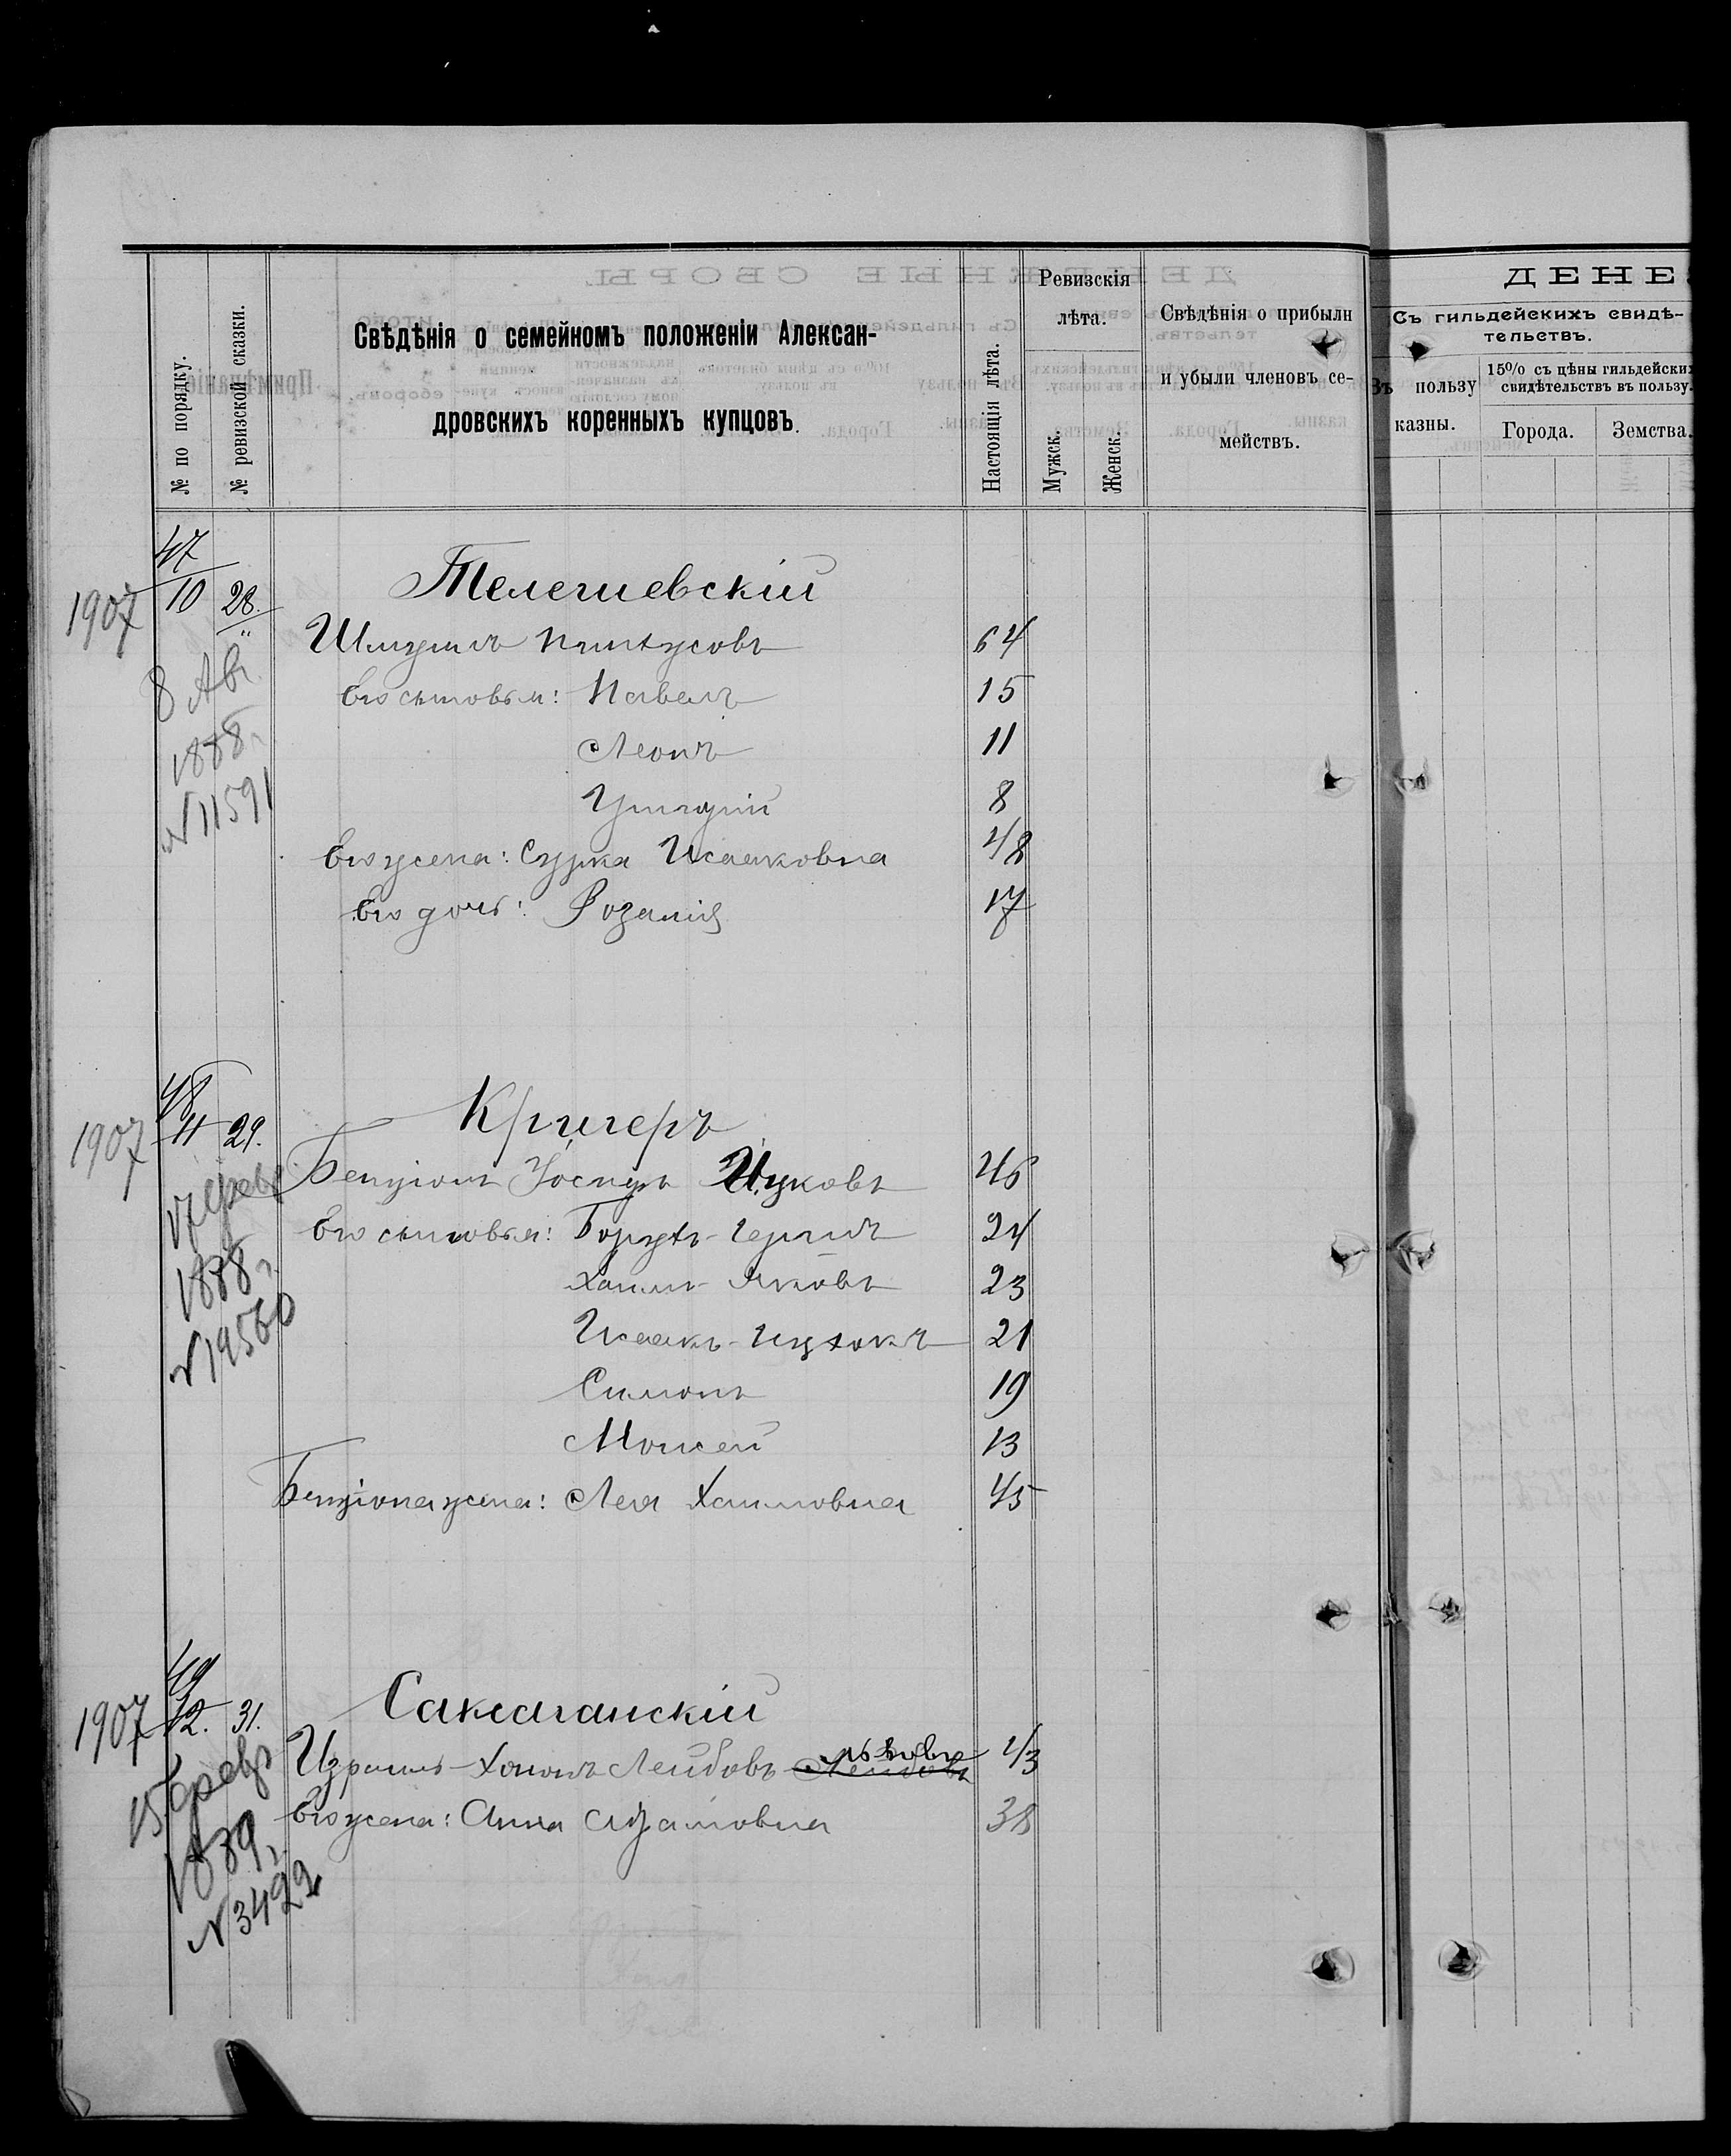 № по порядку.
№ ревизской сказки.
Свѣдѣнія о семейномъ положеніи Алексан-
дровскихъ коренныхъ купцовъ.
Настоящія лѣта.
Ревизскія
лѣта.
Мужск.
Женск.
Свѣдѣнія о прибыли
и убыли членовъ се-
мействъ.
ДЕНЕ
Съ гильдейскихъ свидѣ-
тельствъ.
Въ пользу
казны.
15% съ цѣны гильдейских
свидѣтельствъ въ пользу.
Города.
Земства.
47
1907 10 28. Телегиевскій
Шмуилъ Пинхусовъ 64
8 Авг. Его сыновья: Павелъ 15
1888 г. Леонъ 11
№ 11591 8
Его жена: Сурка Исааковна 48
Его дочь: Розалія 17
48
1907 11 29. Кригеръ
Бенціонъ Іосифъ Ицковъ 46
17 Февр Его сыновья: Борухъ-Герши 24
1888 г. Хаимъ-Яковъ 23
№ 19560 Исаакъ-Ицхокъ 21
Симонъ 19
Моисей 13
Бенціона жена: Лея Хаимовна 45
49
1907 12. 31. Саксаганскій
Израиль-Хононъ Лейбовъ 43
15 Февр Его жена: Анна 38
1889 г.
№ 3492